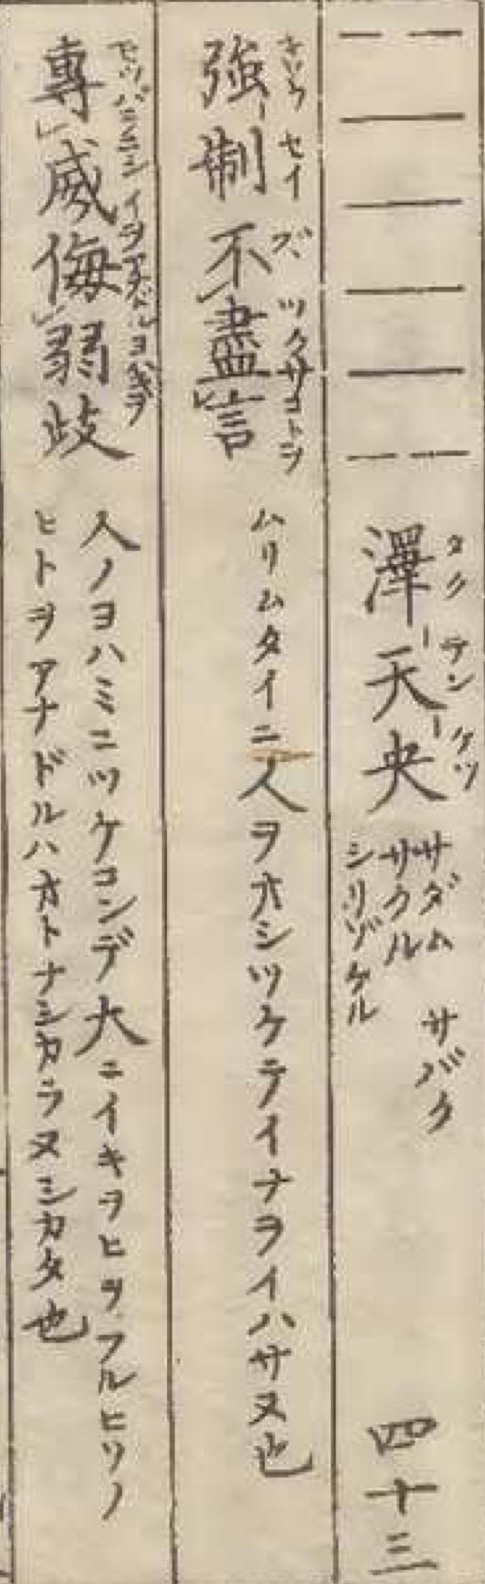 澤天夬 タクテンケツ サダム サバク サクル シリゾケル 四十三
強制不盡言 キヤウセイズツクサコトヲ
ムリムタイニ人ヲオシツケテイナヲイハサヌ也
專威侮弱歧
人ノヨハミニツケコンデ大ニイキヲヒヲフルヒソノ
ヒトヲアナドルハオトナシカラヌシカタ也